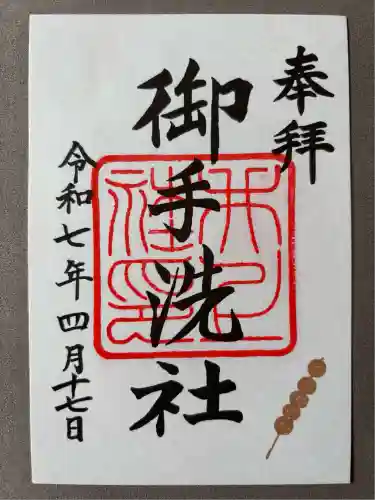 奉拝
御手洗社
令和七年四月十七日